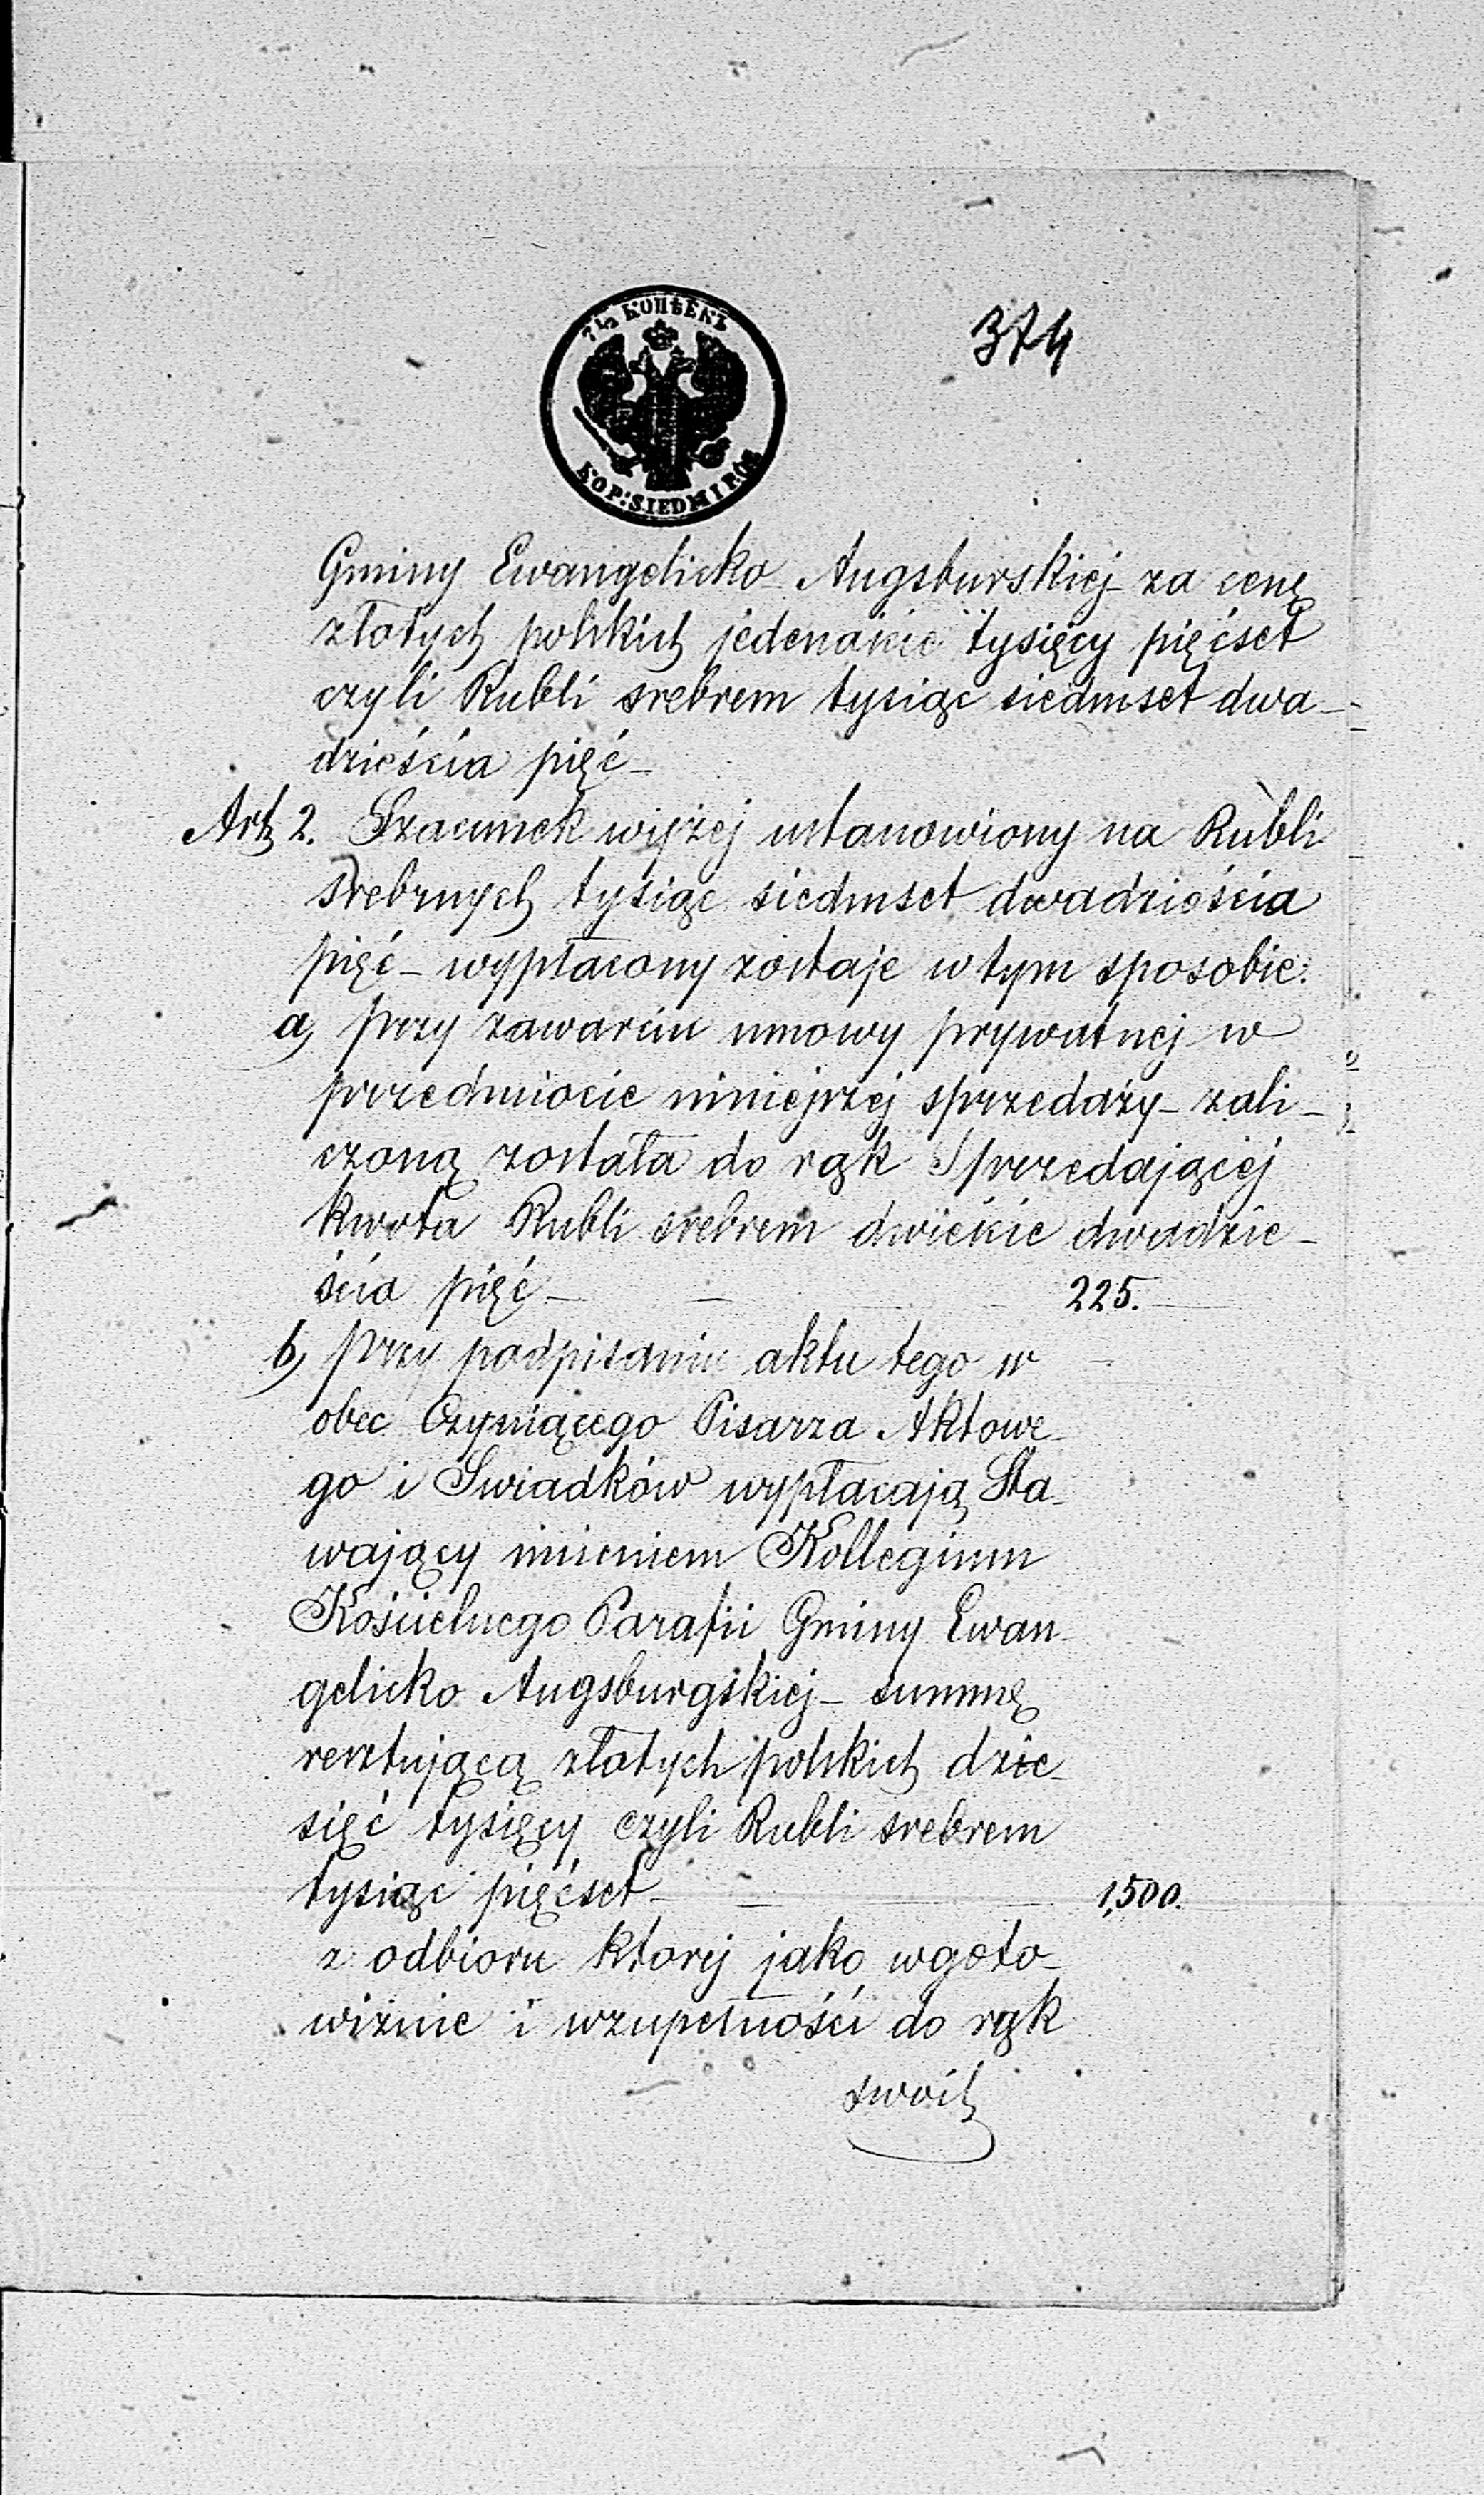 7½ КОПѢЕКЪ
374
KOP: SIEDM I PÓŁ
Gminy Ewangelicko Augsburskiej za cenę
złotych polskich jedenaście tysięcy pięćset
czyli Rubli srebrem tysiąc siedmset dwa-
dzieścia pięć-
Art 2. Szacunek wyżej ustanowiony na Rubli
srebrnych tysiąc siedmset dwadzieścia
pięć - wypłacony zostaje w tym sposobie:
a, przy zawarciu umowy prywatnej w
przedmiocie niniejszej sprzedaży - zali-
czoną została do rąk Sprzedającej
kwota Rubli srebrem dwieście dwadzie-
ścia pięć - - 225.
b, przy podpisaniu aktu tego w
obec Czyniącego Pisarza Aktowe-
go i Swiadków wypłacają Sta-
wający imieniem Kollegium
Kościelnego Parafii Gminy Ewan-
gelicko Augsburgskiej - summę
resztującą złotych polskich dzie-
sięć tysięcy czyli Rubli srebrem
tysiąc pięćset - - 1,500.
z odbioru ktorej jako wgoto-
wiźnie i wzupełności do rąk
swoich